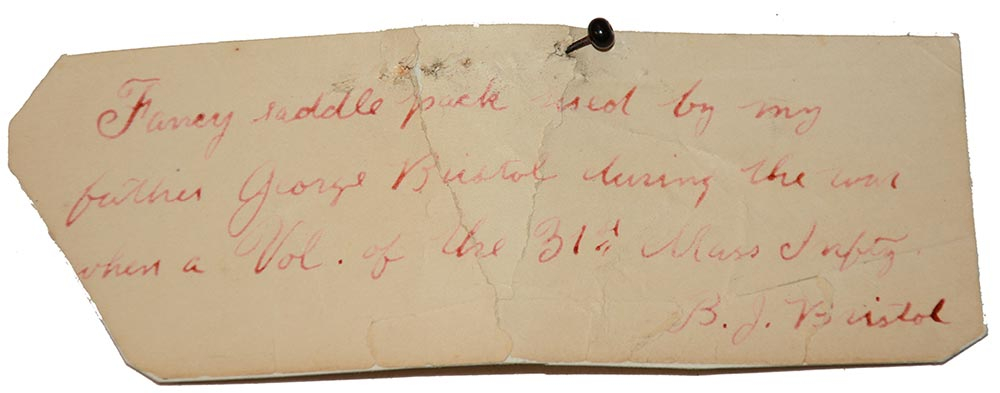 Fancy saddle pack used by my
father George Bristol during the war
when a Vol. of the 31st Mass Infty.
B. J. Bristol